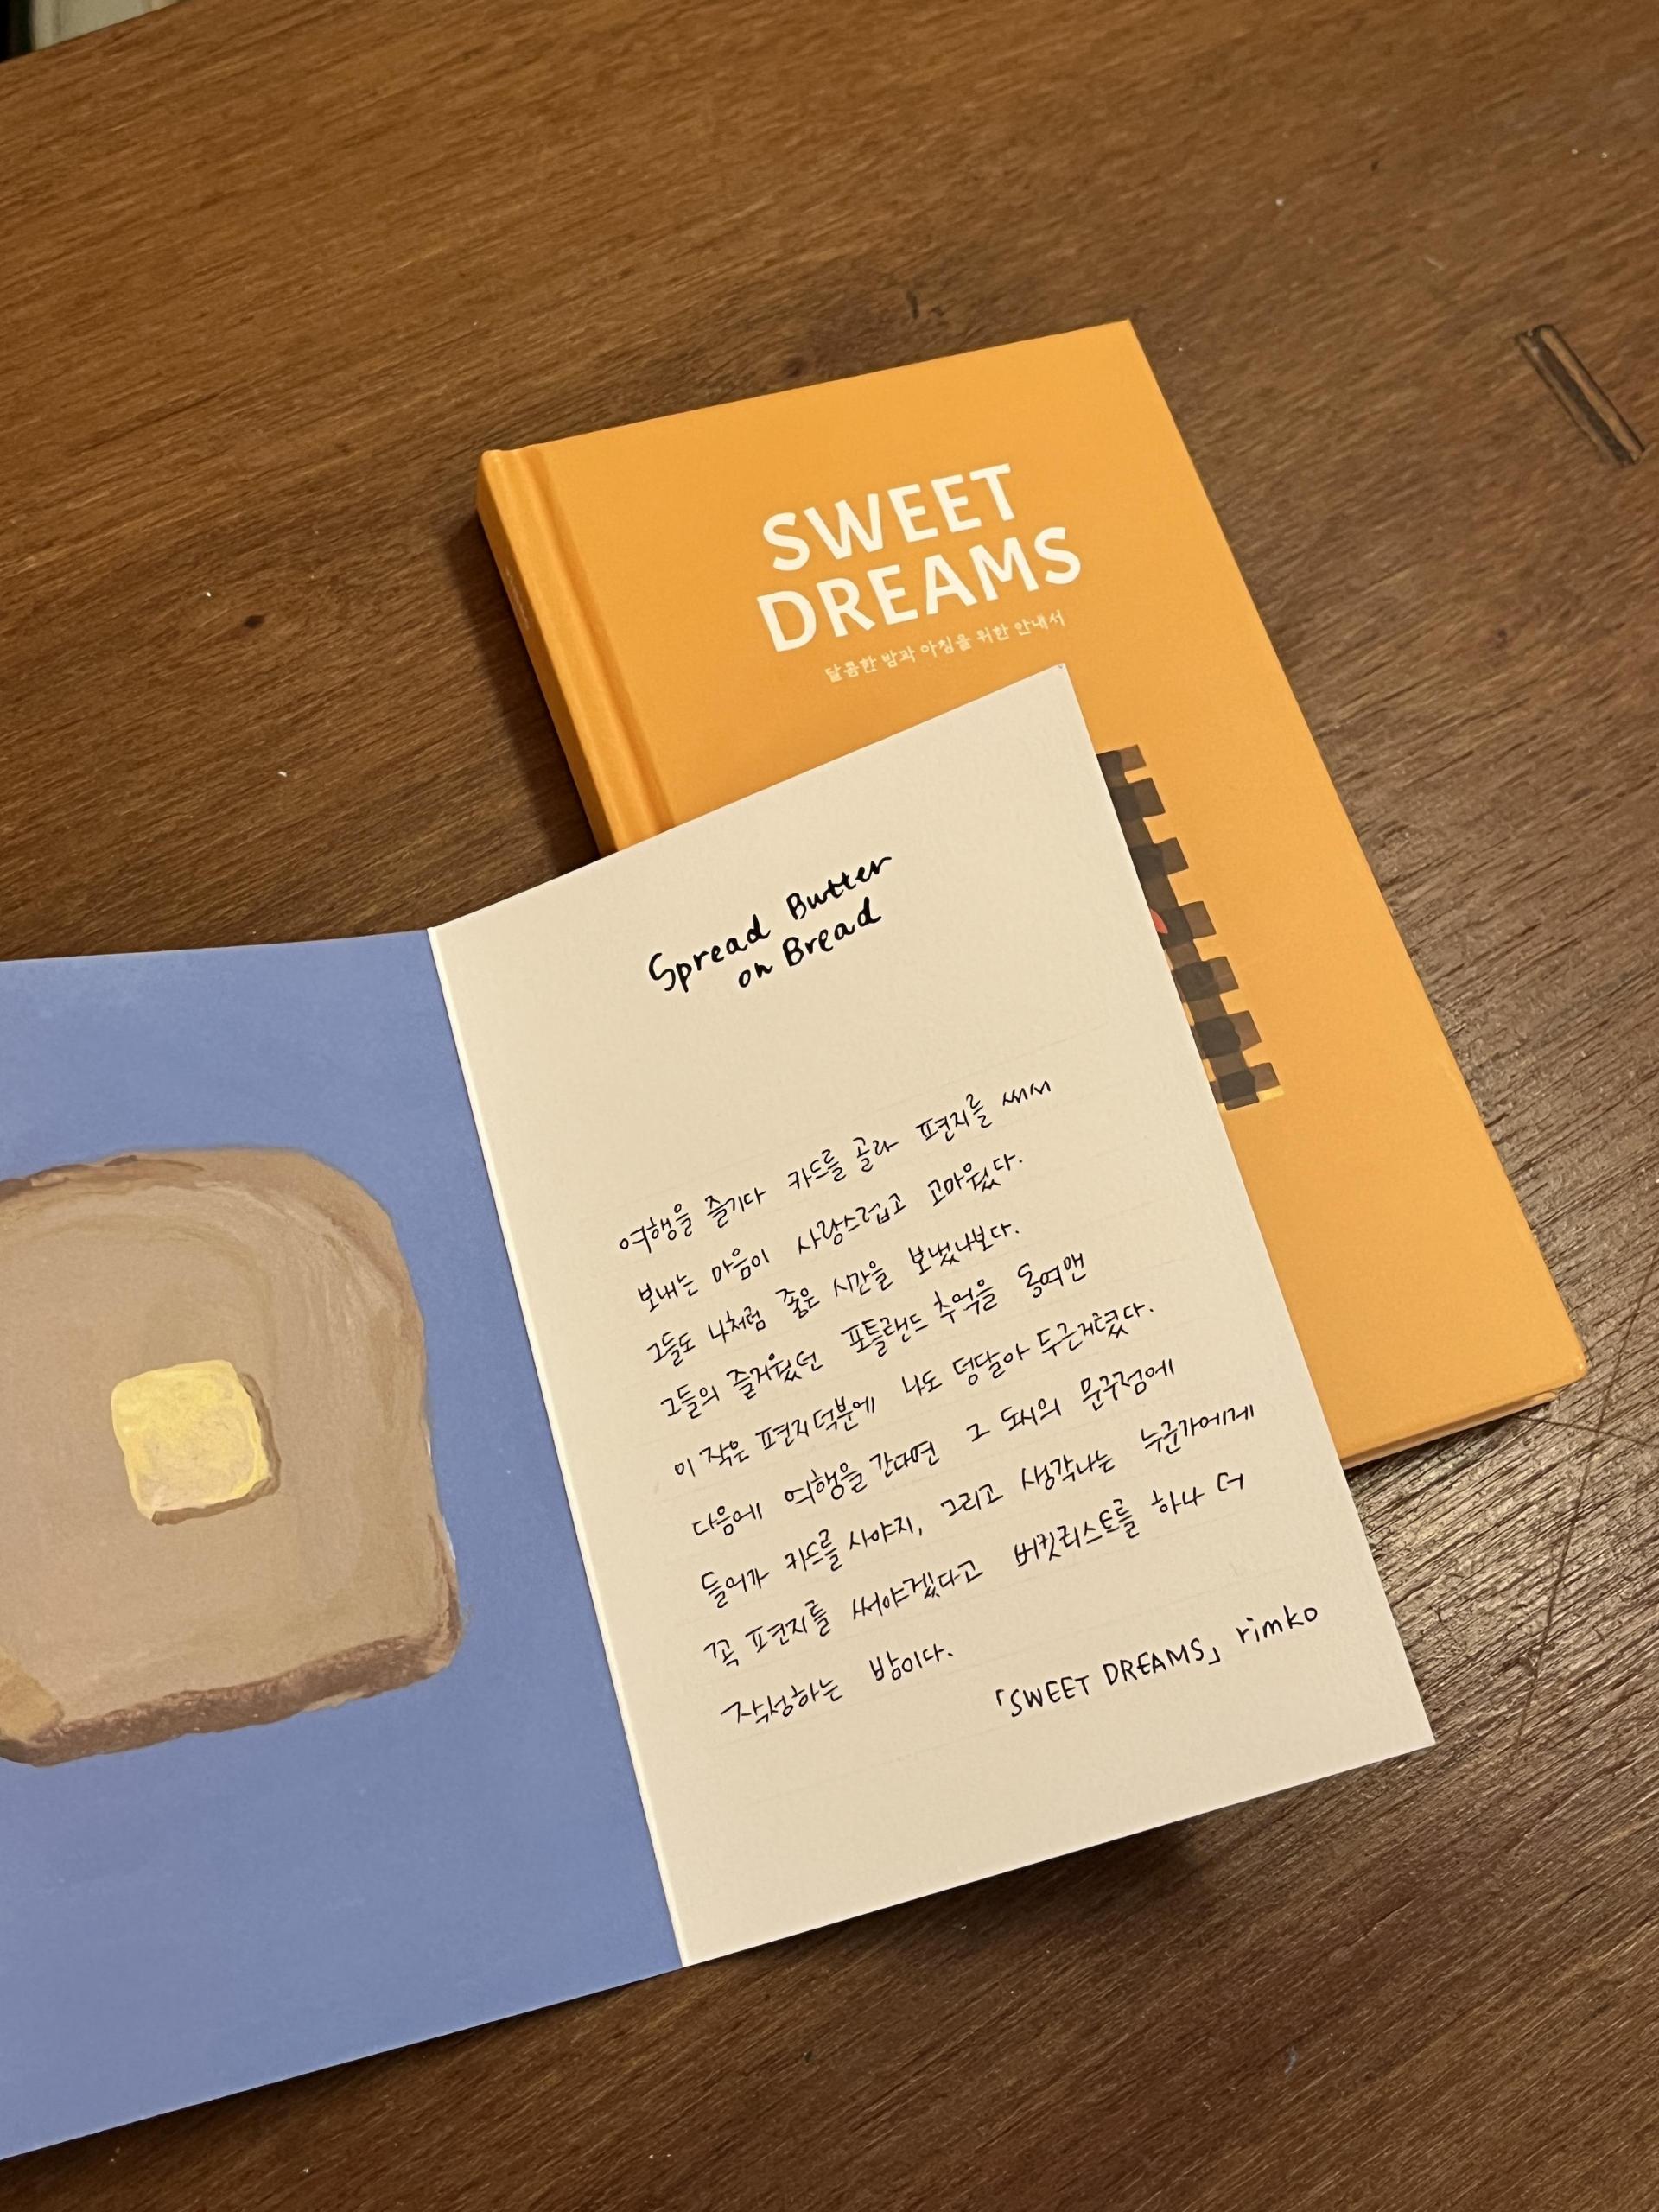 SWEET
DREAMS
달콤한 밤과 아침을 위한 안내서
Spread Butter
on Bread
여행을 즐기다 카드를 골라 편지를 써서
보내는 마음이 사랑스럽고 고마웠다.
그들도 나처럼 좋은 시간을 보냈나보다.
그들의 즐거웠던 포틀랜드 추억을 동여맨
이 작은 편지 덕분에 나도 덩달아 두근거렸다.
다음에 여행을 간다면 그 도시의 문구점에
들어가 카드를 사야지, 그리고 생각나는 누군가에게
꼭 편지를 써야겠다고 버킷리스트를 하나 더
작성하는 밤이다.
「SWEET DREAMS」 rimko